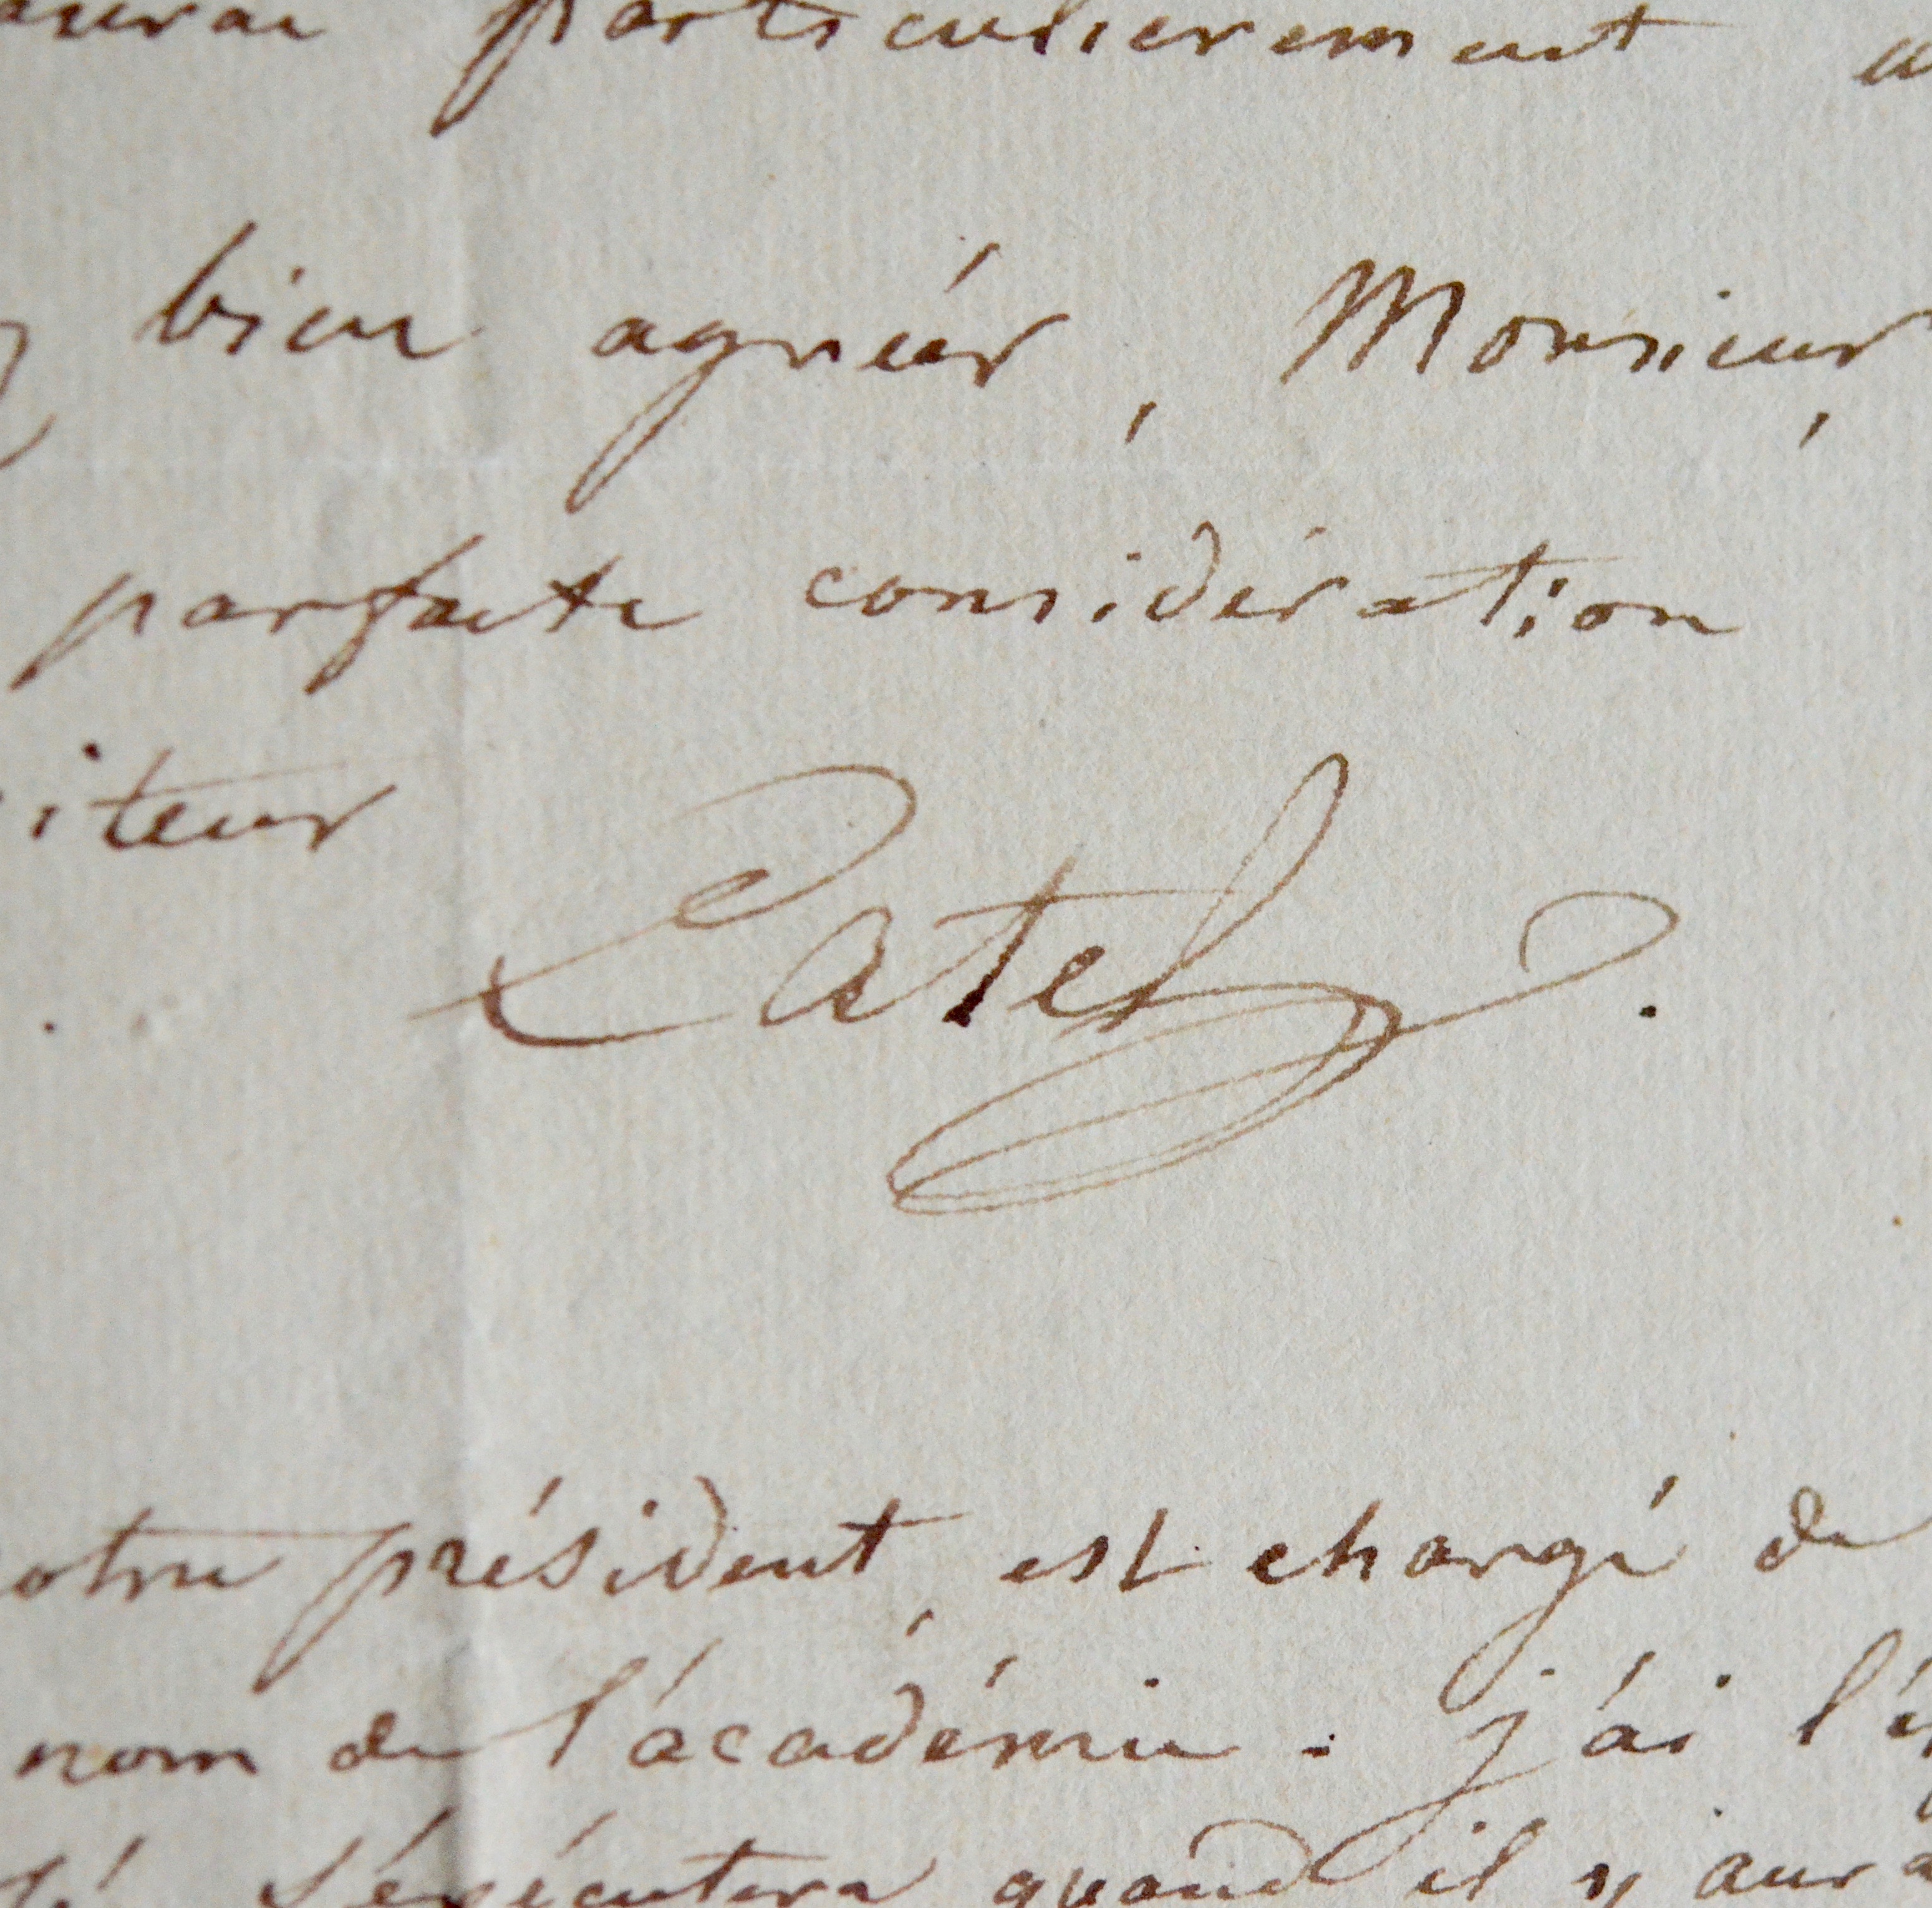 particulierement
bien agréér, Monsieur,
parfaite considération
iteur
Catel.
président, est chargé de
nom de l'académie. j'ai l'
s'éxécutera quand il y aura